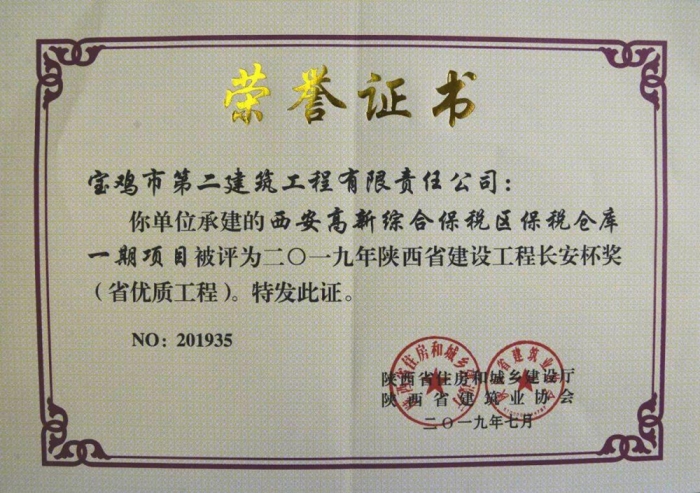 荣誉证书
宝鸡市第二建筑工程有限责任公司：
你单位承建的西安高新综合保税区保税仓库
一期项目被评为二〇一九年陕西省建设工程长安杯奖
（省优质工程）。特发此证。
NO: 201935
陕西省住房和城乡建设厅
陕西省建筑业协会
二〇一九年七月